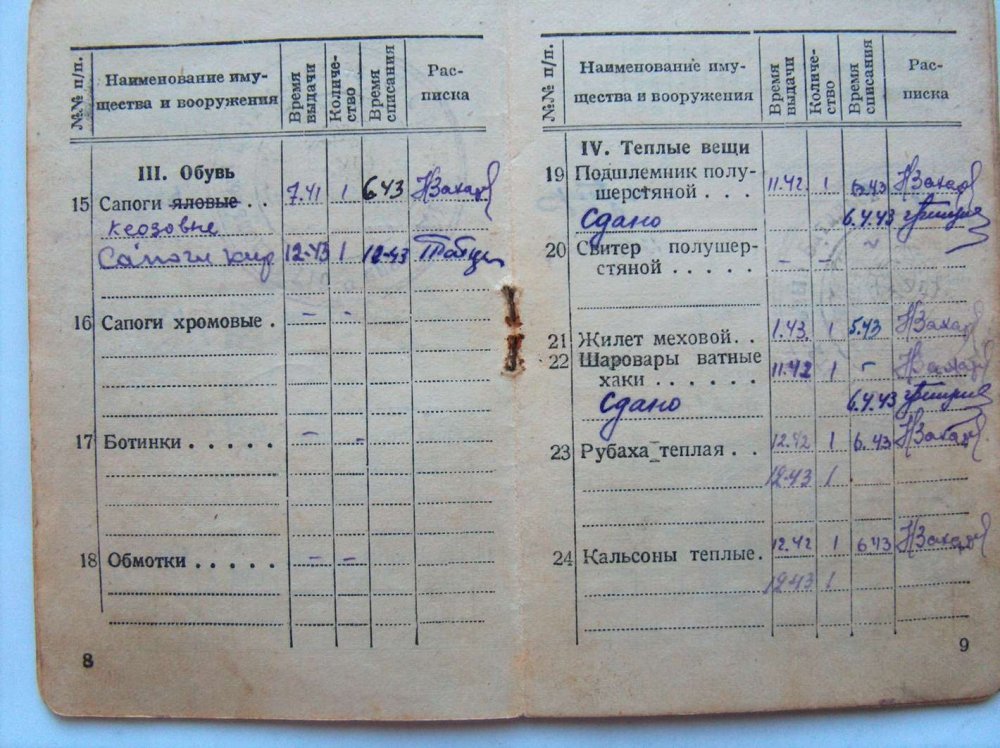 №№ п/п. Наименование иму-щества и вооружения Время выдачи Количе-ство Время списания Рас-писка
III. Обувь
15 Сапоги яловые . . 7.41 1 6.43 НЗахар
Сапоги кир 12-43 1 12-43
16 Сапоги хромовые . – –
17 Ботинки . . . . . – –
18 Обмотки . . . . . – –
8
№№ п/п. Наименование иму-щества и вооружения Время выдачи Количе-ство Время списания Рас-писка
IV. Теплые вещи
19 Подшлемник полу-
шерстяной . . . 11.42 1 6.43 НЗахар
Сдано 6.4.43
20 Свитер полушер-
стяной . . . . . – – –
21 Жилет меховой . . 1.43. 1 5.43 НЗахар
22 Шаровары ватные
хаки . . . . . . 11.42 1 – НЗахар
Сдано 6.4.43
23 Рубаха теплая . . 12.42 1 6.43 НЗахар
12-43 1
24 Кальсоны теплые . 12.42 1 6.43 НЗахар
12-43 1
9